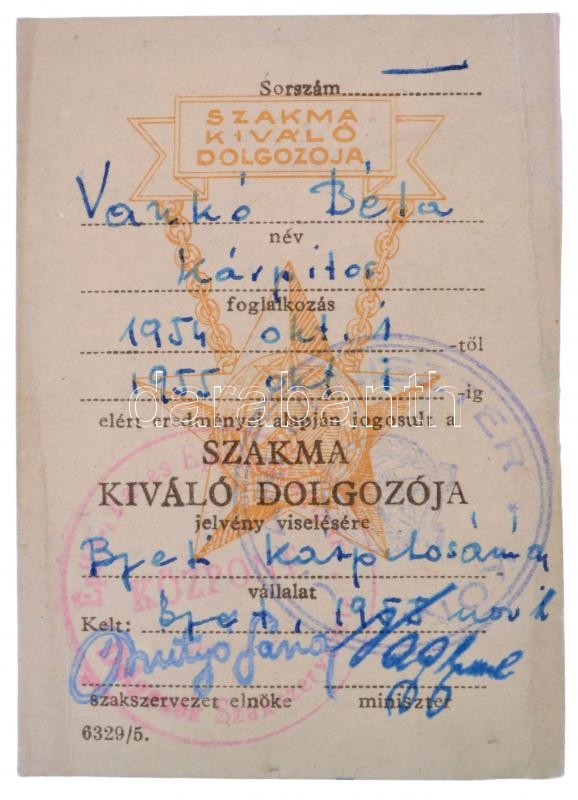 Sorszám
SZAKMA
KIVÁLÓ
DOLGOZÓJA
Vankó Béla
név
Kárpitos
foglalkozás
1954 okt. 1 -től
1955 okt 1 -ig
darabanth
elért eredmények alapján jogosult a
SZAKMA
KIVÁLÓ DOLGOZÓJA
jelvény viselésére
Bpesti
KÖZPONT
vállalat
Kelt: Bpest, 1955 nov 1
János
szakszervezet elnöke miniszter
6329/5.